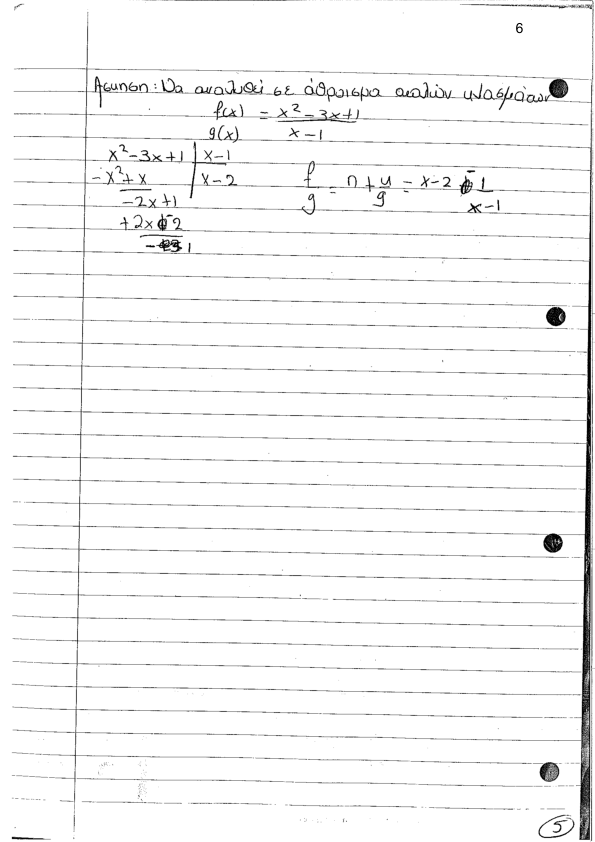 6
Άσκηση: Να αναλυθεί σε άθροισμα απλών κλασμάτων
f(x) = x² - 3x + 1
g(x) x - 1
x² - 3x + 1 | x - 1
- x² + x | x - 2
- 2x + 1
+ 2x - 2
- 1
f/g = π + υ/g = x - 2 - 1/(x - 1)
5